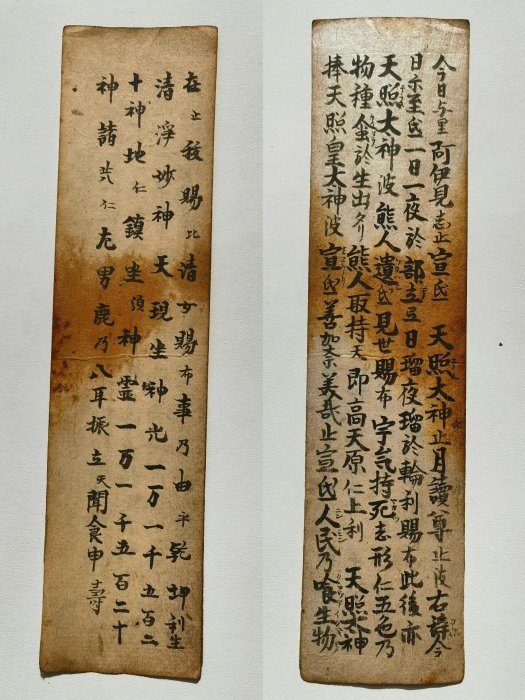 今日与里阿伊見志止宣氐 天照大神止月讀尊止波右今
日尓至氐一日一夜於部立豆日瑠夜瑠於輪利賜布此後亦
天照太神波熊人遺氐見世賜布宇気持死志形仁五色乃
物種蚕於生出タリ熊人取持天即高天原仁上利 天照太神
捧天照皇太神波宣氐善加奈美哉止宣氐人民乃喰生物
在止殺賜比清女賜布事乃由乎利生
清浄妙神天現坐神光一万一千五百二
十神地仁鎮坐須神霊一万一千五百二十
神諸共仁左男鹿乃八耳振立天聞食申寿